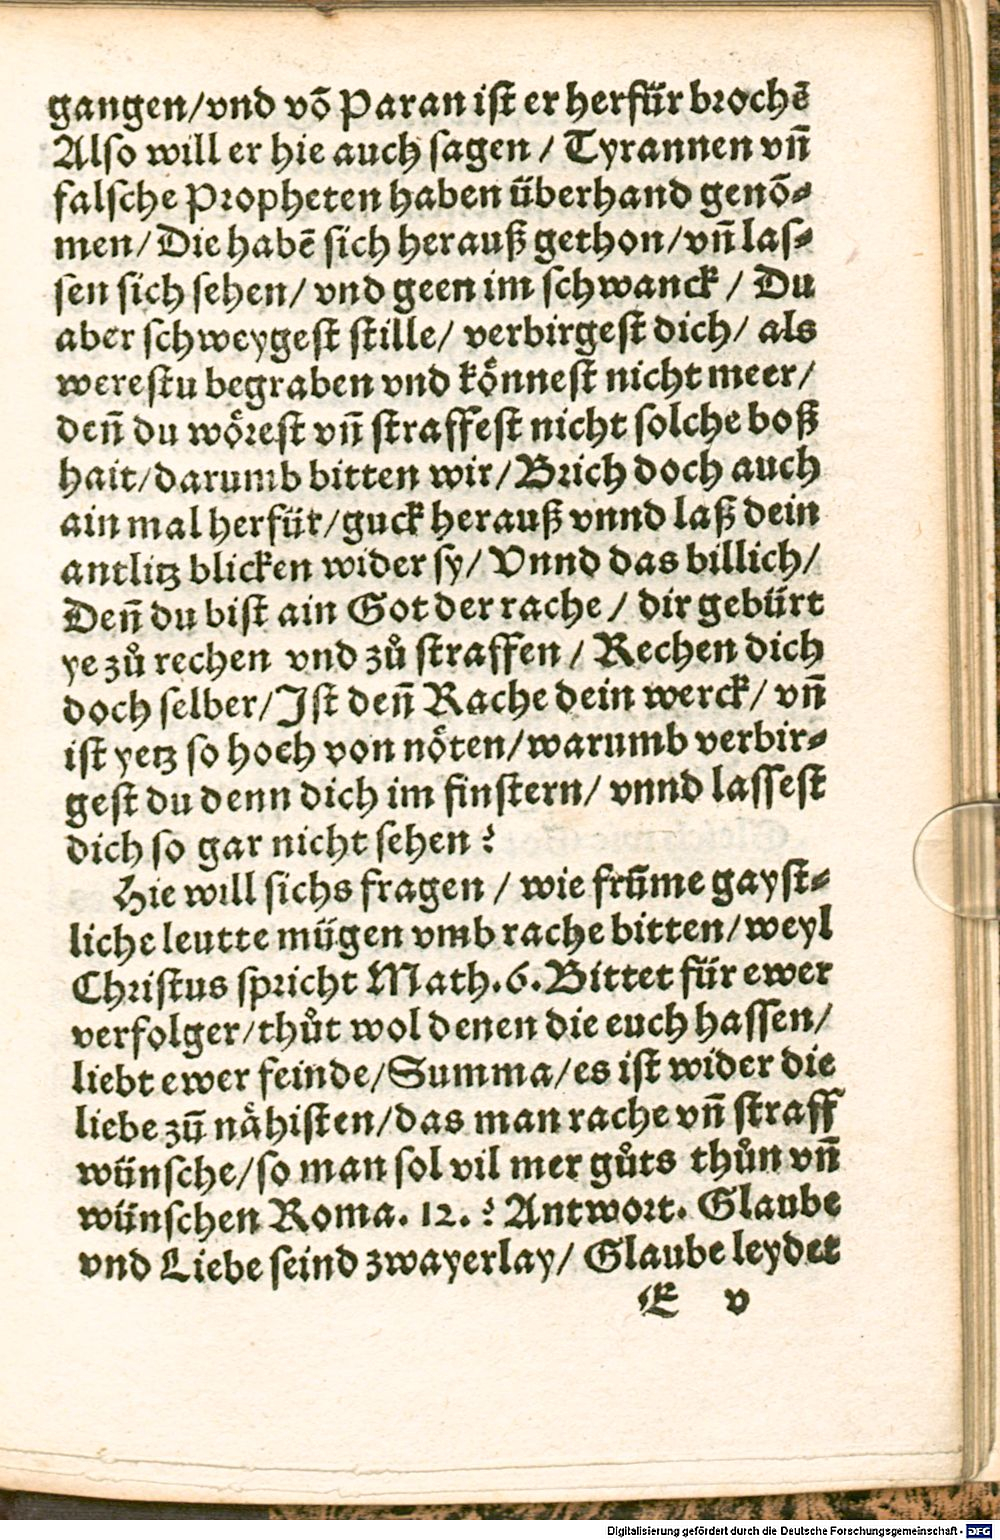 gangen/vnd võ Paran ist er herfür brochẽ
Also will er hie auch sagen / Tyrannen vñ
falsche Propheten haben überhand genõ-
men/ Die habẽ sich herauß gethon/vñ las-
sen sich sehen/ vnd geen im schwanck / Du
aber schweygest stille/ verbirgest dich/ als
werestu begraben vnd koͤnnest nicht meer/
deñ du woͤrest vñ straffest nicht solche boß
hait/darumb bitten wir/ Brich doch auch
ain mal herfür/guck herauß vnnd laß dein
antlitz blicken wider sy/ Vnnd das billich/
Deñ du bist ain Got der rache / dir gebürt
ye zuͦ rechen vnd zuͦ straffen / Rechen dich
doch selber/ Ist deñ Rache dein werck/ vñ
ist yetz so hoch von noͤten/warumb verbir-
gest du denn dich im finstern/ vnnd lassest
dich so gar nicht sehen?
Hie will sichs fragen / wie frũme gayst-
liche leutte mügen vmb rache bitten/weyl
Christus spricht Math.6. Bittet für ewer
verfolger/thuͦt wol denen die euch hassen/
liebt ewer feinde/Summa/es ist wider die
liebe zũ naͤhisten/das man rache vñ straff
wünsche/so man sol vil mer guͦts thuͦn vñ
wünschen Roma. 12. ? Antwort. Glaube
vnd Liebe seind zwayerlay/ Glaube leydet
E v
Digitalisierung gefördert durch die Deutsche Forschungsgemeinschaft - DFG